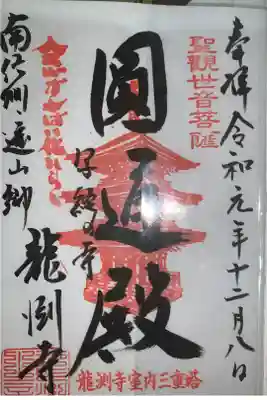 奉拝 令和元年十二月八日
聖観世音菩薩
圓通殿
南信州・遠山郷
龍渕寺
龍渕寺室内三重塔